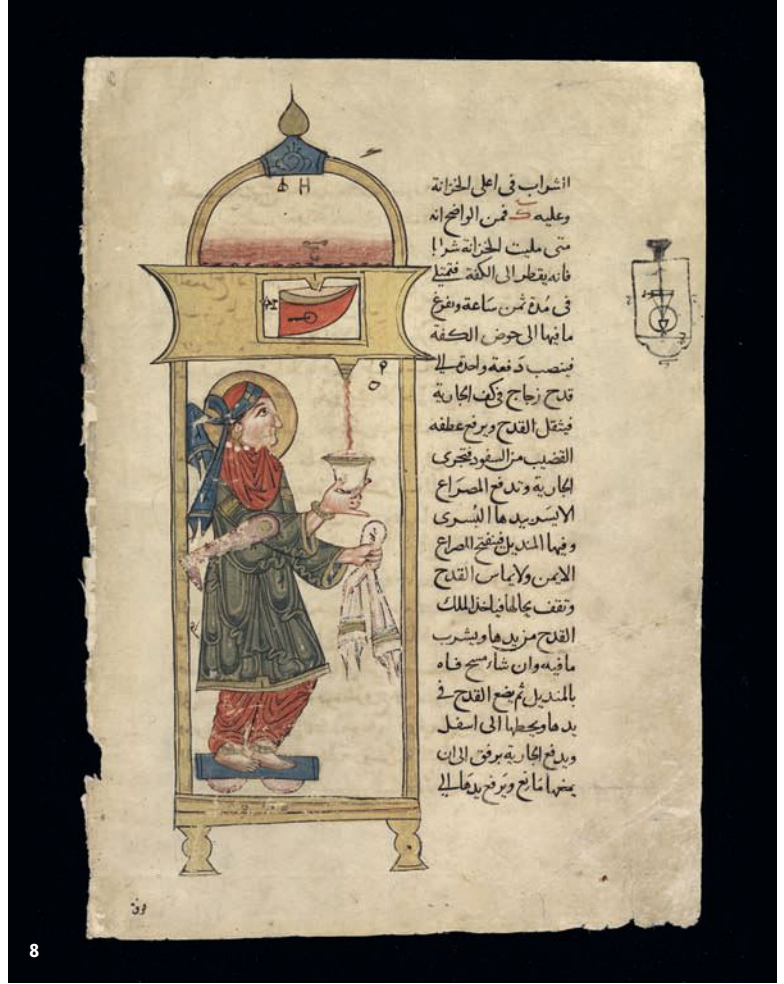 الشراب في اعلى الخزانة
وعليه ك فمن الواضح انه
متى مليت الخزانة شرابا
فانه يقطر الى الكفة فتمتلي
فى مدة ثمن ساعة وتفرغ
ما فيها الى حوض الكفة
فينصب دفعة واحدة الى
قدح زجاج فى كف الجارية
فيثقل القدح ويرفع عطفه
القضيب من السفود فتجرى
الجارية وتدفع المصراع
الايسر بيدها اليسرى
وفيها المنديل فينفتح المصراع
الايمن ولا يماس القدح
وتقف بحالها فياخذ الملك
القدح من يدها ويشرب
ما فيه وان شاء مسح فاه
بالمنديل ثم يضع القدح في
يدها ويحطها الى اسفل
ويدفع الجارية برفق الى ان
يمنعها مانع ويرفع يدها الى
8